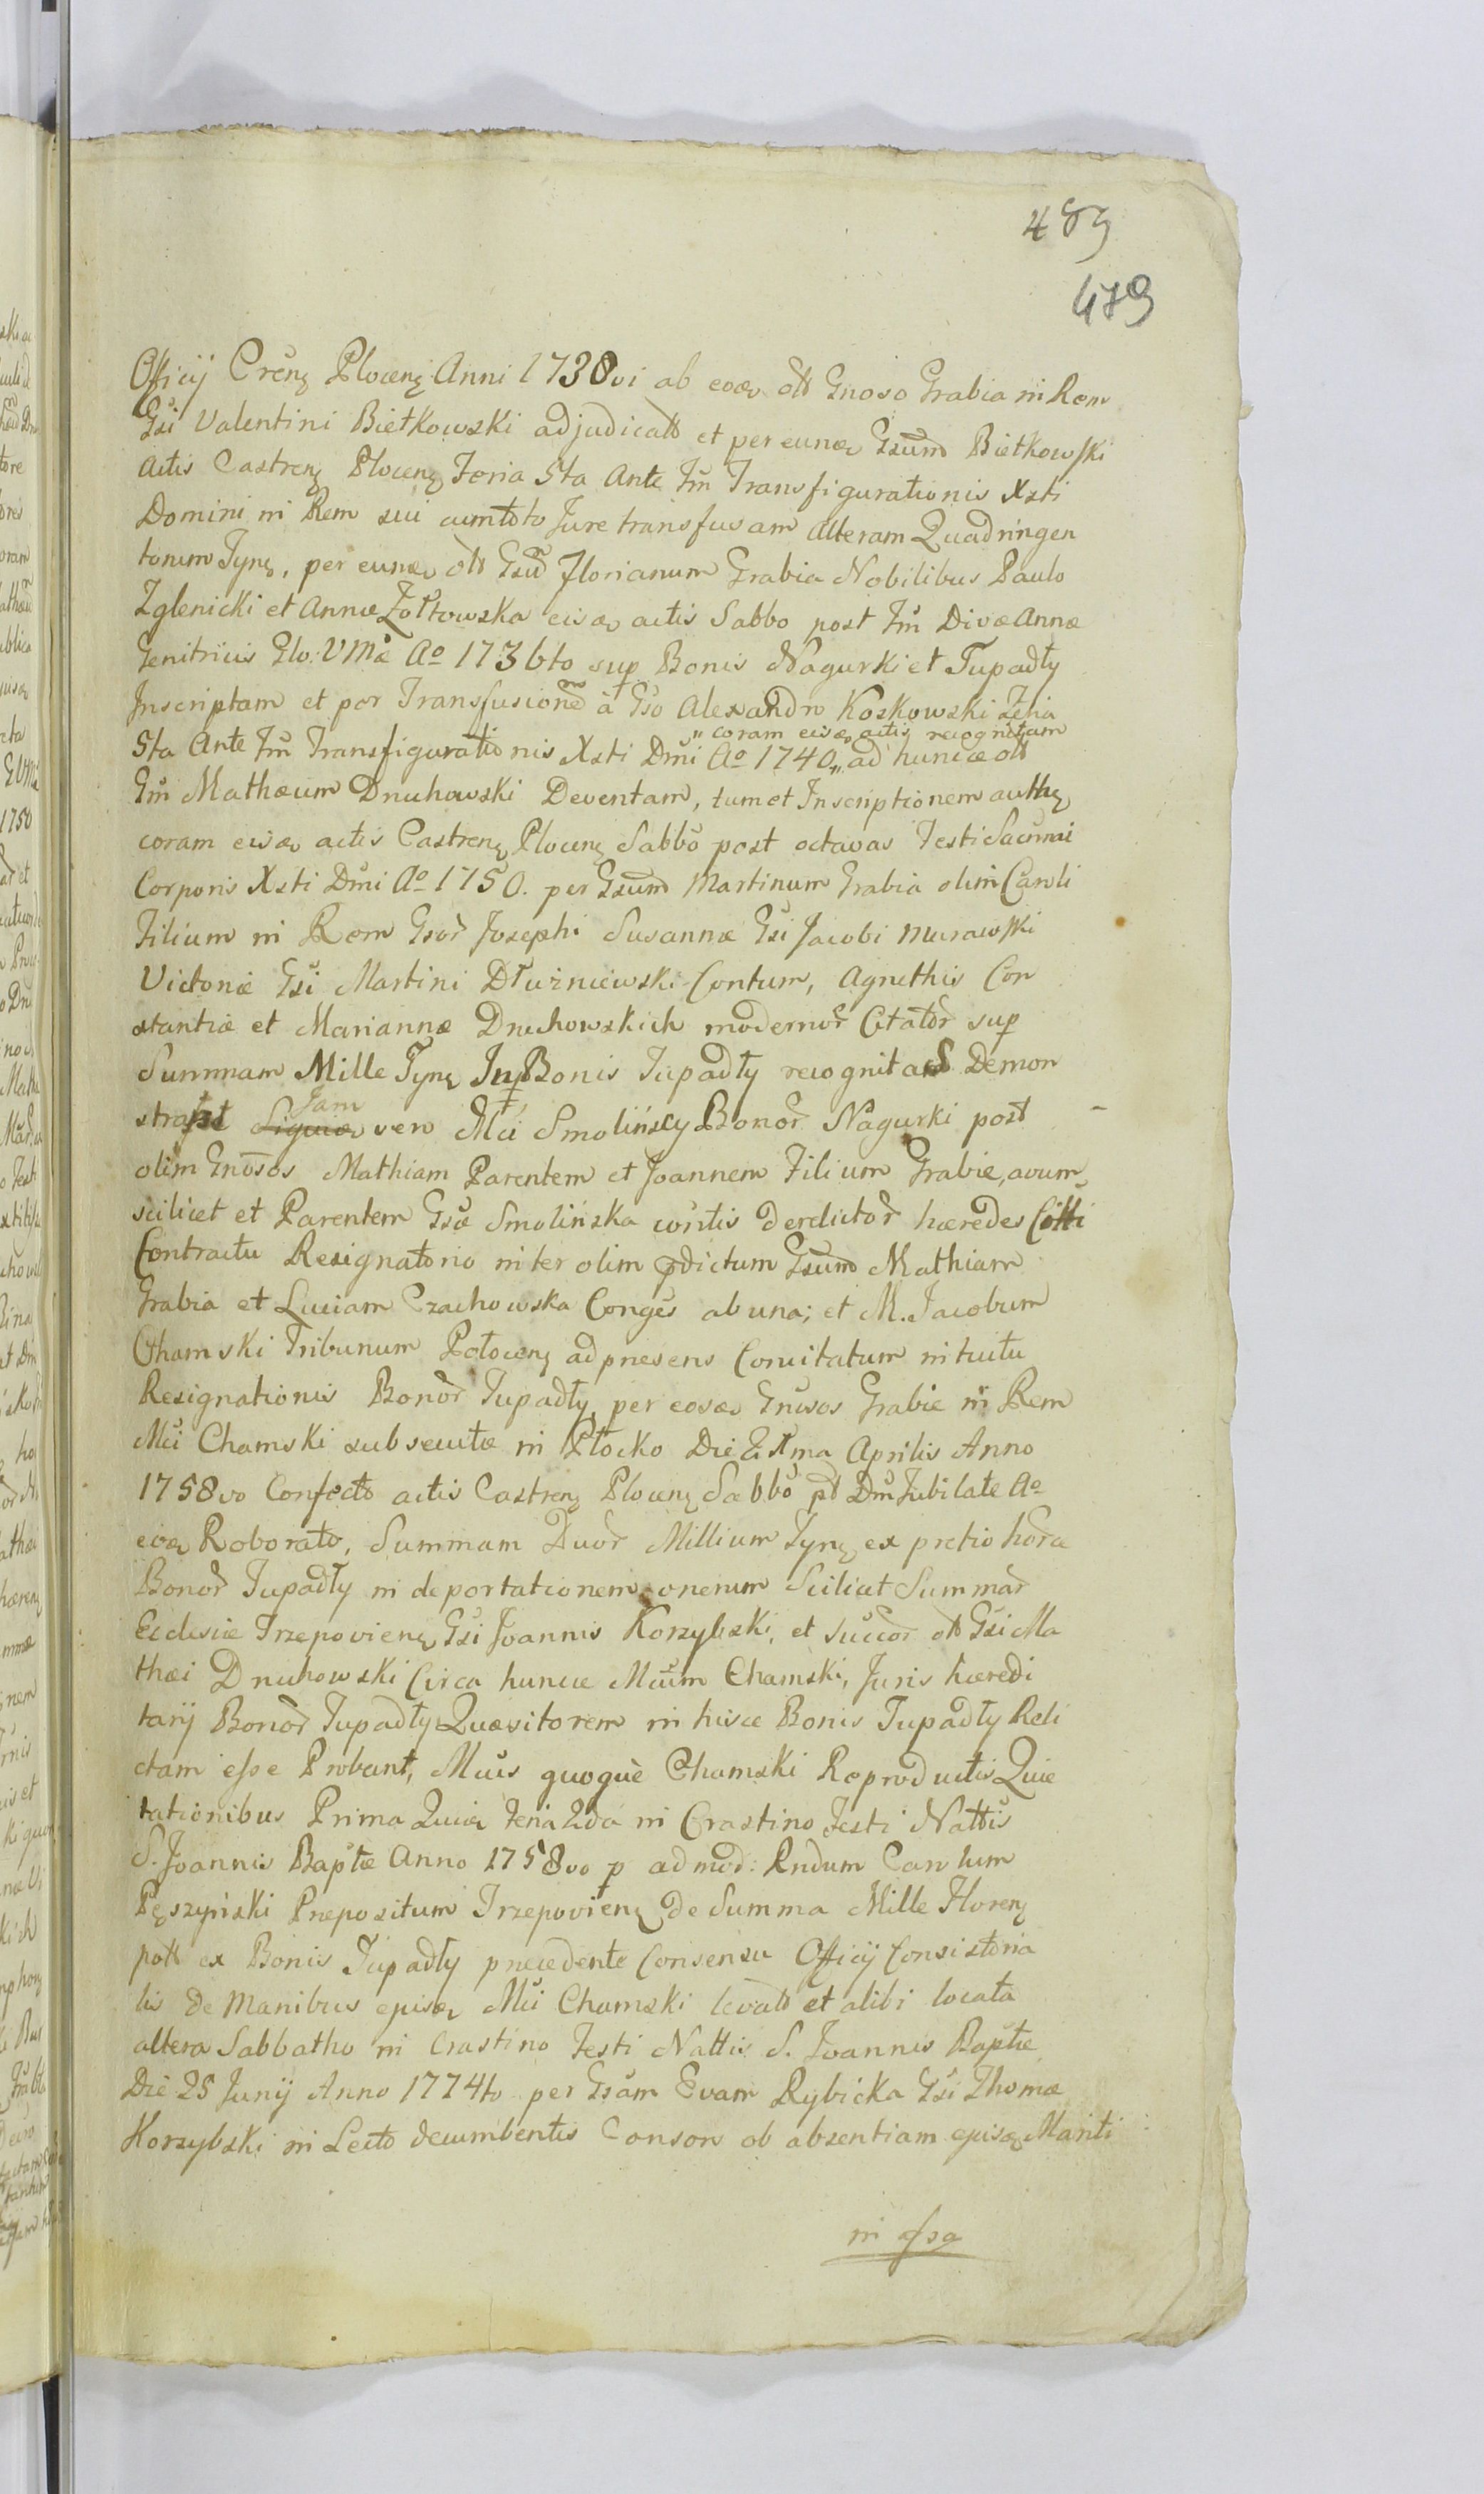 489
479
Officij Crenz Plocenz Anni 1738vi ab eodem olt Gnoso Grabia in Rem
Gsi Valentini Bietkowski adjudicatt et per eundem Gsum Bietkowski
actis Castrenz Plocenz Feria 5ta Ante Fm Transfigurationis Xsti
Domini in Rem sui cum toto Jure transfusam alteram Quadringen
torum Fynz, per eundem olt Gsum Florianum Grabia Nobilibus Paulo
Zglenicki et Annæ Żołtowska eisdem actis Sabbo post Fm Divæ Annæ
Genitricis Glo: VMæ Ao 1736to sup Bonis Nagurki et Tupadły
Inscriptam et per Transfusionem à Gso Alexandro Koskowski Feria
„ coram eisdem actis recognitam
5ta Ante Fm Transfigurationis Xsti Dmi Ao 1740 „ ad huncce olt
Gm Mathæum Druhowski Deventam, tum et Inscriptionem authz
coram eisdem actis Castrenz Plocenz Sabbo post octavas Festi Sacrmi
Corporis Xsti Dmi Ao 1750. per Gsum Martinum Grabia olim Caroli
Filium in Rem Gsor Josephi Susannæ Gsi Jacobi Murawski
Victoriæ Gsi Martini Dłużniewski Contum, Agnethis Con
stantiæ et Mariannæ Druhowskich modernor Citator sup
Summam Mille Fynz In Bonis Tupadły recognitas Demon
Jam
strant Siquidem vero Mci Smolińscy Bonor Nagurki post
olim Gnosos Mathiam Parentem et Joannem Filium Grabie, avum
scilicet et Parentem Gsæ Smolińska contis derelictor hæredes Citti
Contractu Resignatorio inter olim pdictum Gsum Mathiam
Grabia et Luciam Czachowska Conges ab una; et M. Jacobum
Chamski Tribunum Płocenz ad præsens Comitatum intuitu
Resignationis Bonor Tupadły, per eosdem Gnosos Grabie in Rem
Mci Chamski subsecutæ in Płocko Die 21ma Aprilis Anno
1758vo Confecto actis Castrenz Plocenz Sabbo pt Dm Jubilate Ao
eodem Roborato, Summam Duor Millium Fynz ex pretio horce
Bonor Tupadły in deportationem onerum Scilicet Summar
Ecclesiæ Trzepovienz Gsi Joannis Korzybski, et Succor olt Gsi Ma
thæi Druhowski Circa huncce Mcum Chamski, Juris hæredi
tarij Bonor Tupadły Quæsitorem in hisce Bonis Tupadły Reli
ctam esse Probant, Mcus quoque Chamski Reproductis Quie
tationibus Prima Quidem Feria 2da in Crastino Festi Nattis
S. Joannis Baptæ Anno 1758vo p admod: Rndum Carolum
Pęszyński Præpositum Trzepovienz de Summa Mille Florenz
poll ex Bonis Tupadły præcedente Consensu Officij Consistoria
lis de Manibus ejusdem Mci Chamski levatt et alibi locata
altera Sabbatho in Crastino Festi Nattis S. Joannis Baptæ
Die 25 Junij Anno 1774to per Gsam Evam Rybicka Gsi Thomæ
Korzybski in Lecto decumbentis Consors ob absentiam ejusdem Mariti